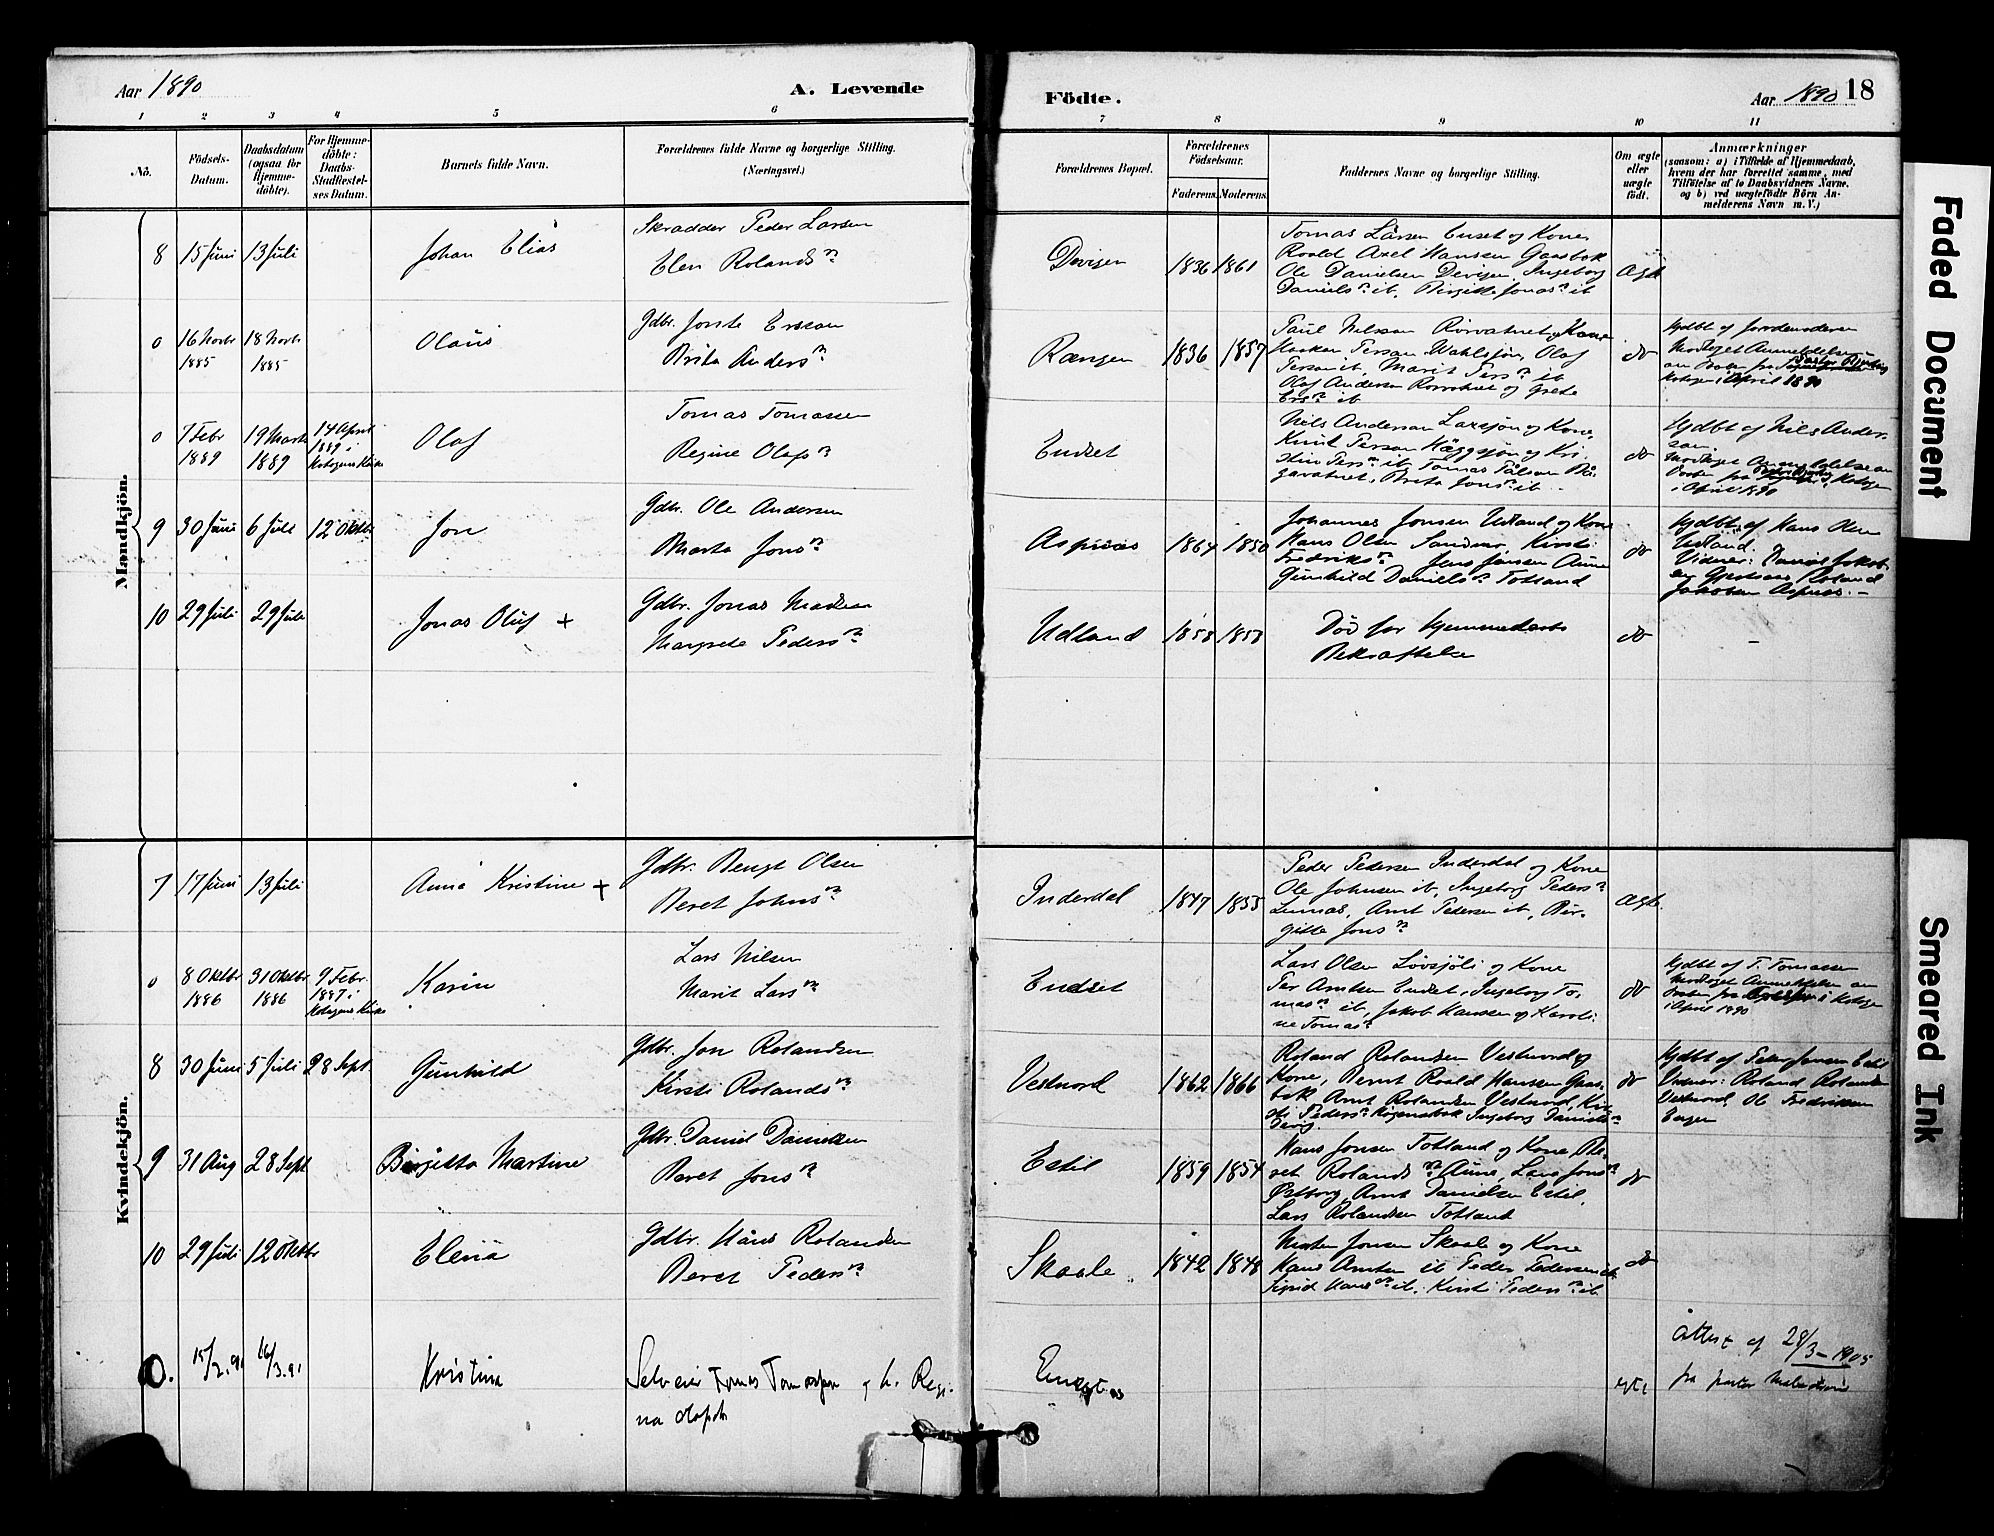 Aar 1890
A. Levende
Födte.
Aar 1890 18
1 2 3 4 5 6 7 8 9 10 11
No.
Födsels-Datum.
Daabsdatum (ogsaa for Hjemme-döbte).
For Hjemme-döbte: Daabs-Stadfæstel-ses Datum.
Barnets fulde Navn.
Forældrenes fulde Navne og borgerlige Stilling. (Næringsvei.)
Forældrenes Bopæl.
Forældrenes Födselsaar.
Faderens. Moderens.
Faddernes Navne og borgerlige Stilling.
Om ægte eller uægte födt.
Anmærkninger
(saasom: a) i Tilfælde af Hjemmedaab, hvem der har forrettet samme, med Tilföielse af to Daabsvidners Navne, og b) ved uægtefödte Börn An-melderens Navn m. V.)
Mandkjön.
8 15 Juni 13 Juli Johan Elias
Skrædder Peder Larsen
Elen Rolandsn
Devigen 1836 1861
Tomas Larsen Enset og Kone
Roald Axel Hansen Gaasbok
Ole Danielsen Devigen, Ingeborg
Danielsn it, Birgitte Jonasn it
Ægte
0 16 Novbr 1885 18 Novbr 1885 Olaus
Gdbr. Jonte Ersson
Brita Andersn
Rængen 1836 1857
Paul Nilsson Rörvatnet og Kone
Haaken Persson Wahlsjön, Olof
Persson it, Marit Persn it
Olof Anderson Rörvatnet og Grete
Ersn it
do
Hjdbt af Jordemoderen
Modtaget Anmeldelse
om Daaben fra
Kotogen i April 1890
0 7 Febr 1889 19 Marts 1889 14 April 1889 i Kotogens Kirke Olof
Tomas Tomassen
Regine Olofsn
Endset
Nils Anderson Laxsjön og Kone,
Knut Persson Häggsjön og Kri-
stin Persn it, Tomas Pålson Rö-
gavatnet, Brita Jonsn it
do
Hjdbt af Nils Ander-
son
Modtaget Anmeldelse om
Daaben fra Kotogen
i April 1890
9 30 Juni 6 Juli 12 Oktbr Jon
Gdbr. Ole Andersen
Marta Jonsn
Aspnes 1864 1850
Johannes Jonsen Udland og Kone
Hans Olsen Sandnes, Kirsti
Fredriksn Jens Jensen Aune
Gunhild Danielsn Totland
do
Hjdbt af Hans Olsen
Udland.
Vidner: Daniel Jakob-
sen Roland
Jakobsen Aspnes.
10 29 Juli 29 Juli Jonas Oluf +
Gdbr. Jonas Madsen
Margrete Pedersn
Udland 1858 1853
Död för Hjemmedaabs
Bekræftelse
do
-
Kvindekjön.
7 17 Juni 13 Juli Anna Kristine +
Gdbr. Bengt Olsen
Beret Johnsn
Inderdal 1847 1855
Peder Pedersen Inderdal og Kone
Ole Johnsen it, Ingeborg Pedersn
Lunnas, Arnt Pedersen it, Bir-
gitte Jonsn
Ægte
0 8 Oktbr 1886 31 Oktbr 1886 9 Febr. 1887 i Kotogens Kirke Karin
Lars Nilsen
Marit Larsn
Endset
Lars Olsen Lövsjöli og Kone
Per Arntsen Endset, Ingeborg To-
masn it, Jakob Hanssen og Karoli-
ne Tomasn
do
Hjdbt af T. Tomassen
Modtaget Anmeldelse om
Daaben fra i Kotogen
i April 1890
8 30 Juni 5 Juli 28 Sept. Gunhild
Gdbr. Jon Rolandsen
Kirsti Rolandsn
Vestnord 1862 1866
Roland Rolandsen Vestnord og
Kone, Bernt Roald Hanssen Gaas-
bok, Arnt Rolandsen Vestnord, Kir-
sti Pedersn Ingeborg Danielsn
Devig.
do
Hjdbt af Peter Jensen Estil
Vidner: Roland Rolandsen
Vestnord, Ole Fredriksen
Engen
9 31 Aug 28 Sept Birgitta Martine
Gdbr. Daniel Danielsen
Beret Jonsn
Estil 1859 1854
Hans Jonsen Totland og Kone Be-
ret Rolandsn Aune, Lars Jonsn
Östborg, Arnt Danielsen Estil,
Lars Rolandsen Totland
do
10 29 Juli 12 Oktbr Elena
Gdbr. Hans Rolandsen
Beret Pedersn
Skaale 1842 1848
Morten Jonsen Skaale og Kone
Hans Arntsen it Peder Pedersen it
Sigrid Hansn it, Kirsti Pedersn it
do
0. 15/2.91 16/3.91 Kristina
Selveier Tomas Tomassen og h. Regi-
na Olofsdr
egte
Attest af 28/3-1905
fra pastor
Faded Document
Smeared Ink